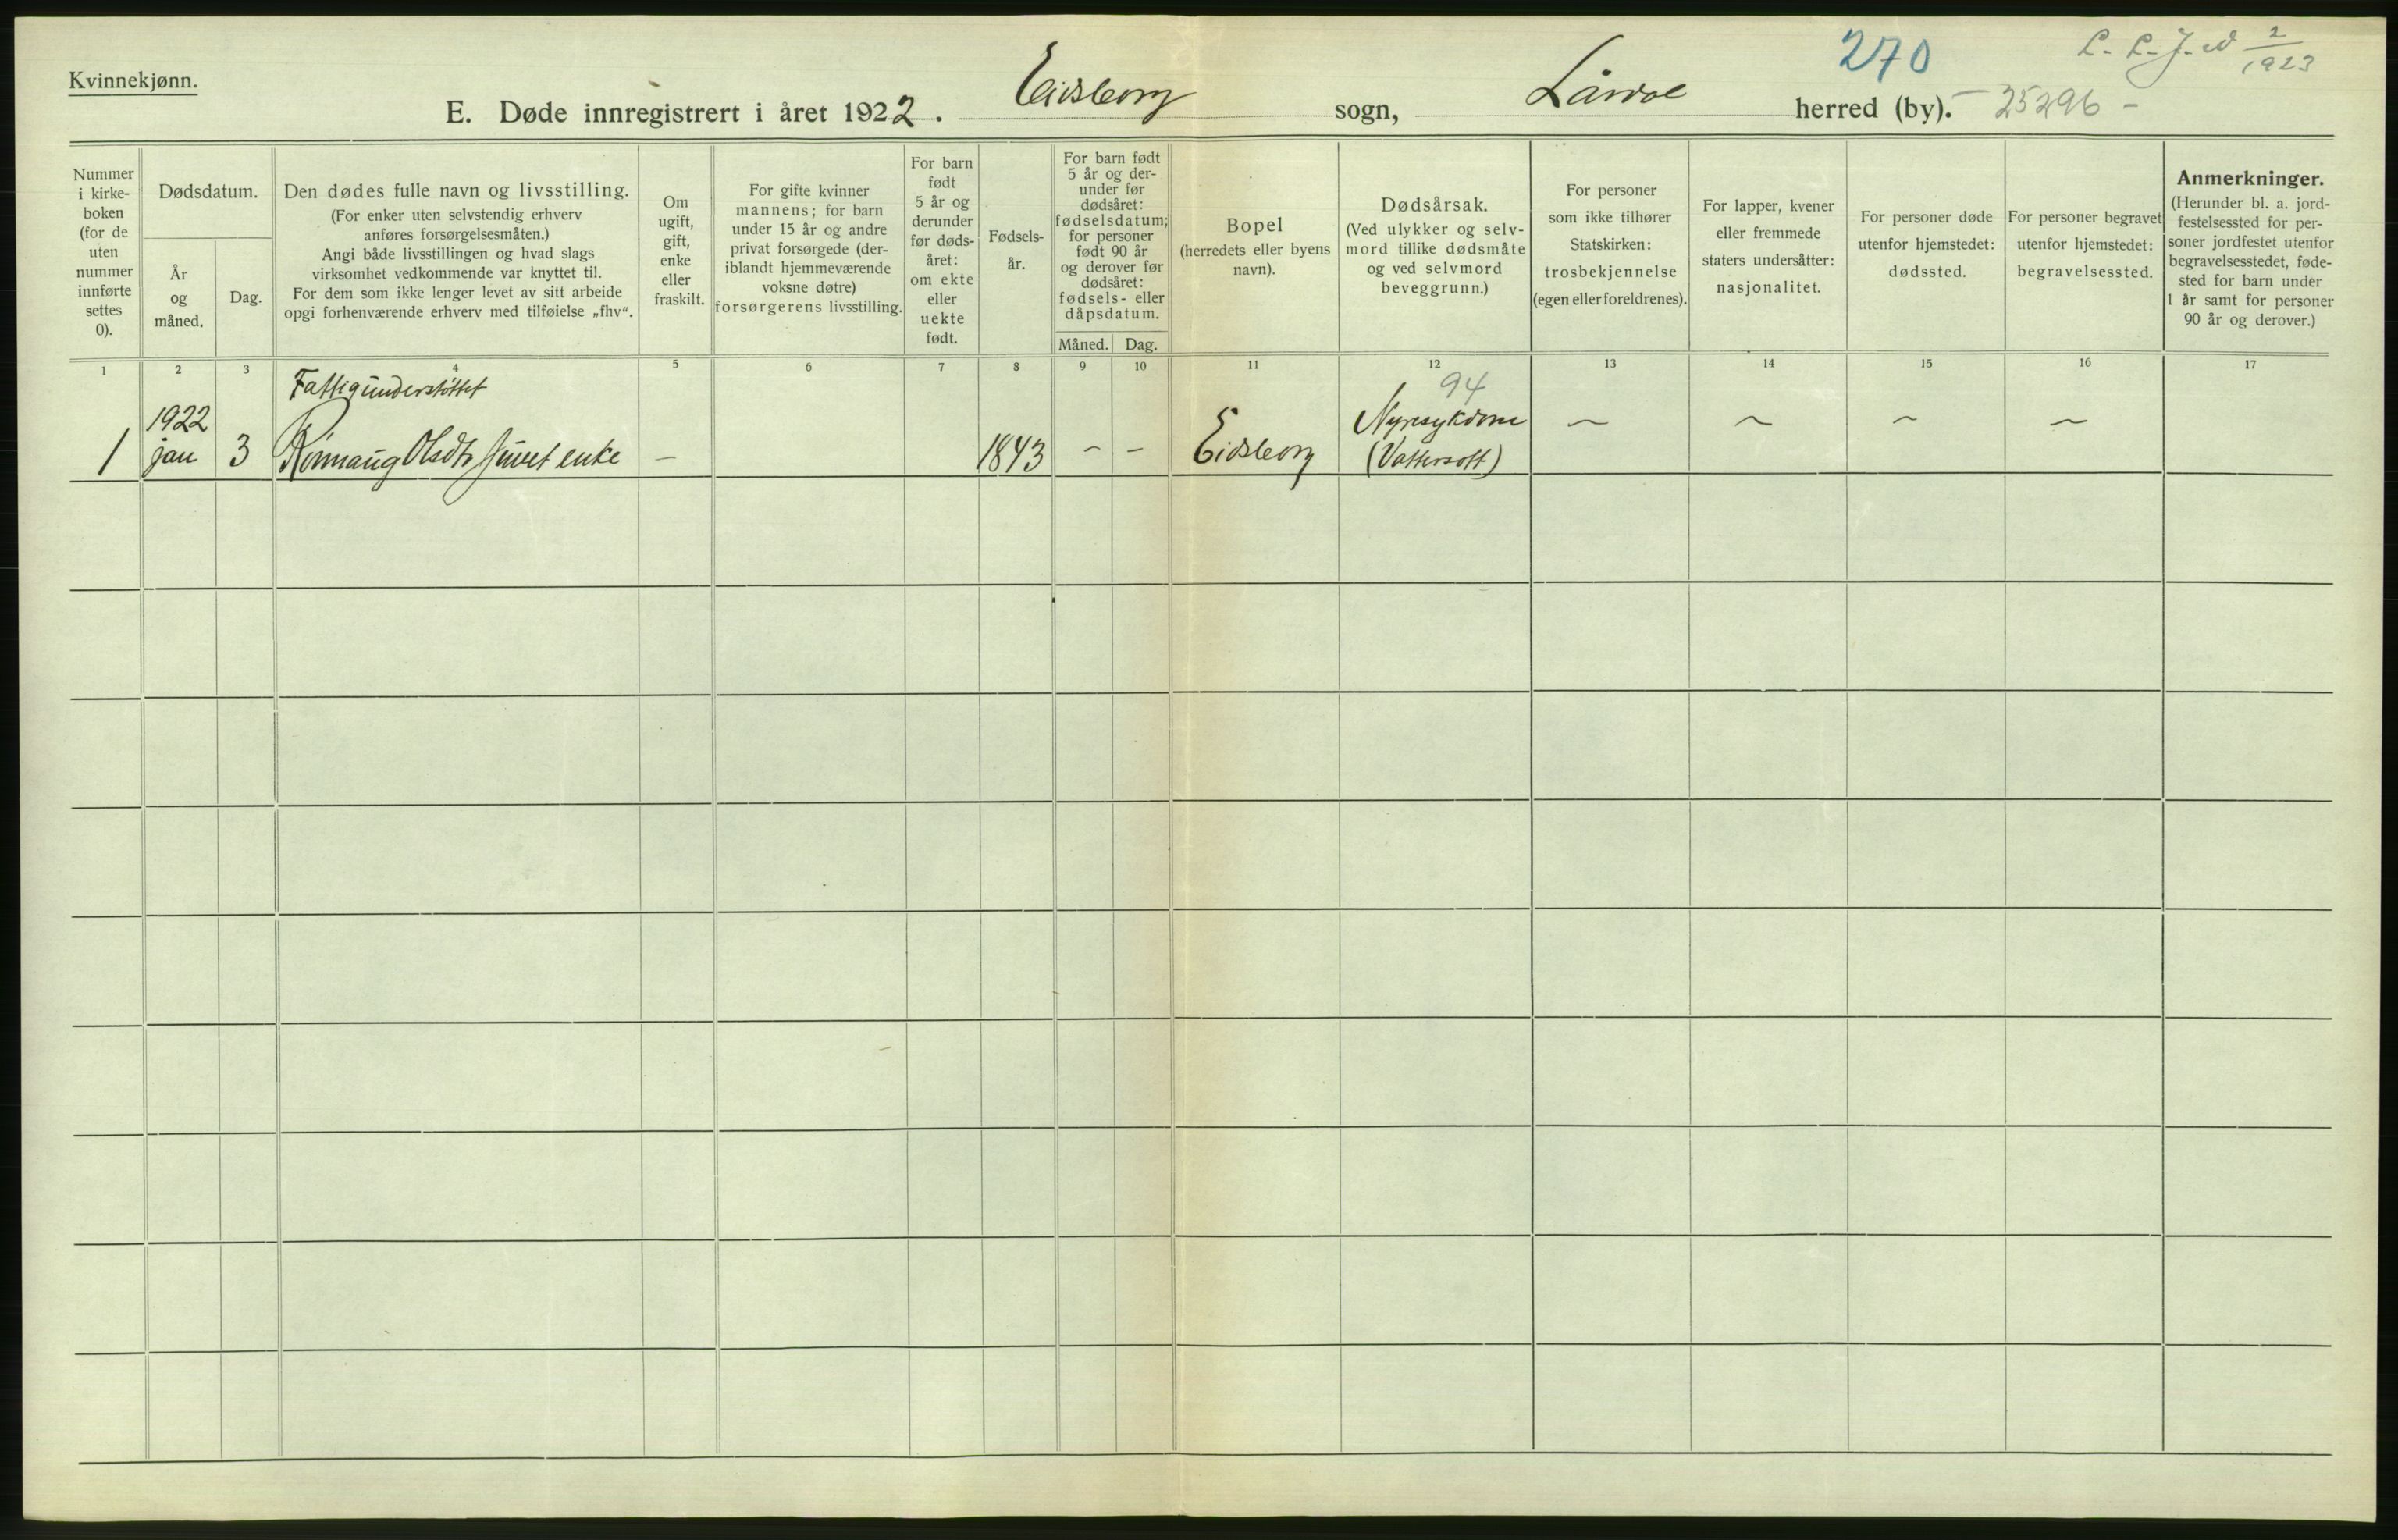 Kvinnekjønn.
270
1923
E. Døde innregistrert i året 1922. Eidsborg sogn, Lårdal herred (by). – 25296 –
Nummer i kirke- boken (for de uten nummer innførte settes 0).
Dødsdatum.
År og måned.
Dag.
Den dødes fulle navn og livsstilling.
(For enker uten selvstendig erhverv
anføres forsørgelsesmåten.)
Angi både livsstillingen og hvad slags
virksomhet vedkommende var knyttet til.
For dem som ikke lenger levet av sitt arbeide
opgi forhenværende erhverv med tilføielse „fhv“.
Om
ugift,
gift,
enke
eller
fraskilt.
For gifte kvinner
mannens; for barn
under 15 år og andre
privat forsørgede (der-
iblandt hjemmeværende
voksne døtre)
forsørgerens livsstilling.
For barn
født
5 år og
derunder
før døds-
året:
om ekte
eller
uekte
født.
Fødsels-
år.
For barn født
5 år og der-
under før
dødsåret:
fødselsdatum;
for personer
født 90 år
og derover før
dødsåret:
fødsels- eller
dåpsdatum.
Måned. Dag.
Bopel
(herredets eller byens
navn).
Dødsårsak.
(Ved ulykker og selv-
mord tillike dødsmåte
og ved selvmord
beveggrunn.)
For personer
som ikke tilhører
Statskirken:
trosbekjennelse
(egen eller foreldrenes).
For lapper, kvener
eller fremmede
staters undersåtter:
nasjonalitet.
For personer døde
utenfor hjemstedet:
dødssted.
For personer begravet
utenfor hjemstedet:
begravelsessted.
Anmerkninger.
(Herunder bl. a. jord-
festelsessted for per-
soner jordfestet utenfor
begravelsesstedet, føde-
sted for barn under
1 år samt for personer
90 år og derover.)
1 2 3 4 5 6 7 8 9 10 11 12 13 14 15 16 17
Fattigunderstøttet
94
1922
Nyresykdom
1 jan 3 Rønnaug Olsdtr enke – 1843 – – Eidsborg (Vattersott) – – – –